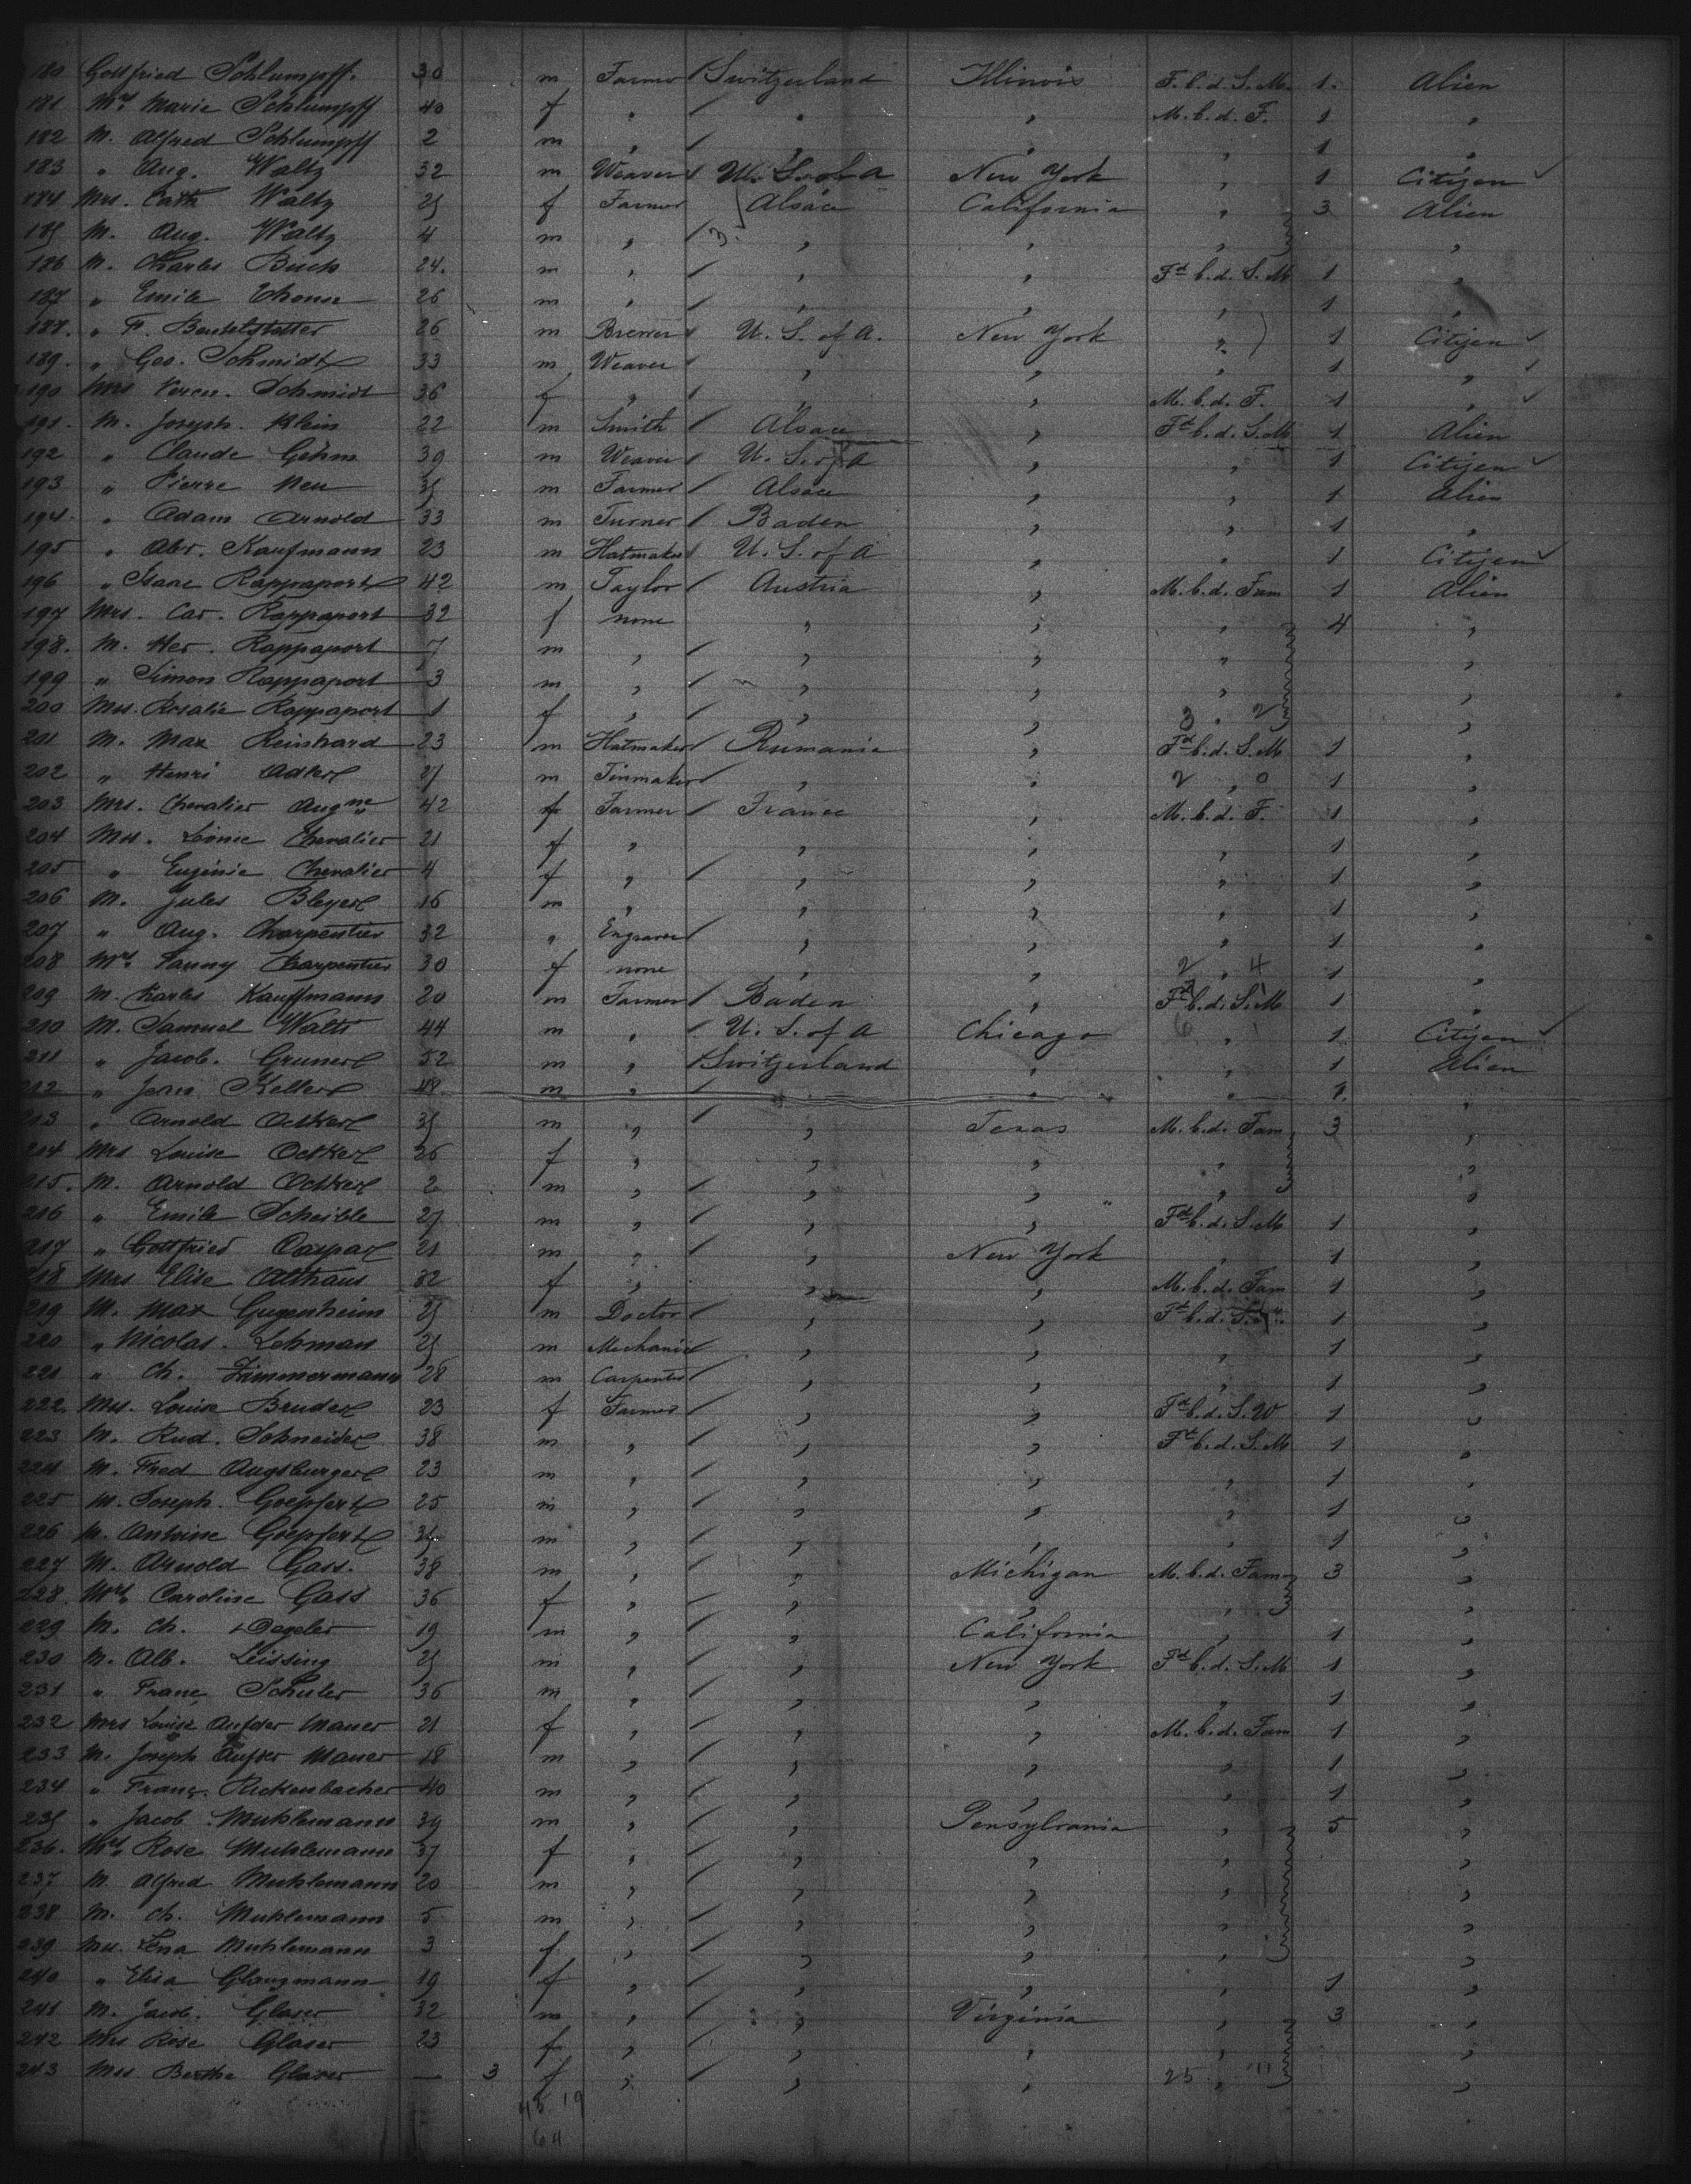 180 Gottfried Schlumpff. 30 m Farmer Switzerland Illinois F. b. d. S. M. 1. Alien
181 Mrs. Marie Schlumpff 40 f " " " M. b. d. F. 1 "
182 M. Alfred Schlumpff 2 m " " " " 1 "
183 " Aug. Waltz 32 m Weaver U. S. of A New York " 1 Citizen
184 Mrs. Cath Waltz 25 f Farmer Alsace California " 3 Alien
185 M. Aug. Waltz 4 m " 3. " " " "
186 M. Charles Buch 24. m " " " Fd b. d. S. M 1 "
187 " Emile 26 m " " " " 1 "
188. " F. 26 m Brewer U. S. of A. New York " 1 Citizen
189. " Geo. Schmidt 33 m Weaver " " " 1 "
190 Mrs Schmidt 36 f " " " M. b. d. F. 1 "
191. M. Joseph. Klein 22 m Smith Alsace " Fd b. d. S. M 1 Alien
192 " Claude Gehm 39 m Weaver U. S. of A " " 1 Citizen
193 " Pierre Neu 35 m Farmer Alsace " " 1 Alien
194. " Adam Arnold 33 m Turner Baden " " 1 "
195 " Abr. Kaufmann 23 m Hatmaker U. S. of A " " 1 Citizen
196 " Isaac Rappaport 42 m Taylor Austria " M. b. d. Fam 1 Alien
197 Mrs. Car. Rappaport 32 f none " " " 4 "
198. M. Her. Rappaport 7 m " " " " "
199 " Simon Rappaport 3 m " " " " "
200 Mss. Rosalie Rappaport 1 f " " " 3 " 2 "
201 M. Max Reinhard 23 m Hatmaker Rumania " Fd b. d. S. M 1 "
202 " Henri Adler 25 m Tinmaker " " 2 " 0 1 "
203 Mrs. Chevalier Augne 42 f Farmer France " M. b. d. F. 1 "
204 Mss. Léonie Chevalier 21 f " " " " 1 "
205 " Eugénie Chevalier 4 f " " " " 1 "
206 M. Jules Bleyer 16 m " " " " 1 "
207 " Aug. Charpentier 32 " Engraver " " " 1 "
208 Mrs. Fanny Charpentier 30 f none " " 2 " 4 1 "
209 M. Charles Kauffmann 20 m Farmer Baden " Fd b. d. S. M 1 "
210 M. Samuel Walti 44 m " U. S. of A Chicago 6 " 1 1 Citizen
211 " Jacob. Gruner 52 m " Switzerland " " 1 Alien
212 " Jean Keller 48 m " " " " 1. "
213 " Arnold Ocker 35 m " " Texas M. b. d. Fam 3 "
214 Mrs Louise Ocker 26 f " " " " "
215. M. Arnold Ocker 2 m " " " " "
216 " Emile Scheible 25 m " " " Fd b. d. S. M 1 "
217 " Gottfried Caspar 21 m " " New York " 1 "
218 Mrs Elise Althaus 32 f " " " M. b. d. Fam 1 "
219 M. Max Gugenheim 25 m Doctor " " Fd b. d. S. M. 1 "
220 " Nicolas. Lehmann 25 m Mechanic " " " 1 "
221 " Ch. Zimmermann 28 m Carpenter " " " 1 "
222. Mss. Louise Bruder 23 f Farmer " " Fd b. d. S. W 1 "
223 M. Rud. Schneider 38 m " " " Fd b. d. S. M 1 "
224 M. Fred Augsburger 23 m " " " " 1 "
225 M. Joseph. Goepfert 25 m " " " " 1 "
226 M. Antoine Goepfert 34 m " " " " 1 "
227 M. Arnold Gass. 38 m " " Michigan M. b. d. Fam 3 "
228. Mrs. Caroline Gass 36 f " " " " "
229 M. Ch. Dageler 19 m " " California " 1 "
230 M. Alb. Leissing 25 m " " New York Fd b. d. S. M 1 "
231 " Franç Schuler 36 m " " " " 1 "
232 Mrs Louise Aufder Mauer 21 f " " " M. b. d. Fam 1 "
233 M. Joseph Aufder Mauer 18 m " " " " 1 "
234 " Franç. Rickenbacher 40 m " " " " 1 "
235 " Jacob Muhlemann 39 m " " Pensylvania " 5 "
236. Mrs. Rose Muhlemann 37 f " " " " "
237 M. Alfred Muhlemann 20 m " " " " "
238 M. Ch. Muhlemann 5 m " " " " "
239 Mss. Lena Muhlemann 3 f " " " " "
240 " Elisa Glangmann 19 f " " " " 1 "
241 M. Jacob. Glaser 32 m " " Virginia " 3 "
242 Mrs Rose Glaser 23 f " " " " "
243 Mss Berthe Glaser — 3 f " " " 25 " 11 "
45 19
64